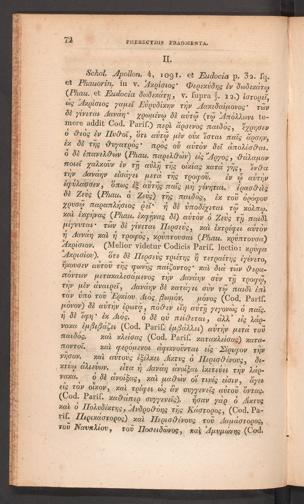 72 PHERECYDIS FRAGMENTA.
II.
Schol. Apollon. 4, 1091. et Eudocia p. 32. sq.
et Phavorin. in v. Ἀκρίσιος· Φερεκύδης ἐν δωδεκάτῳ
(Phau. et Eudocia δωδεκάτη, v. supra §. 12.) ἱστορεῖ,
ὡς Ἀκρίσιος γαμεῖ Εὐρυδίκην τὴν Λακεδαίμονος· τῶν
δὲ γίνεται Δανάη· χρωμένῳ δὲ αὐτῷ (τῷ Ἀπόλλωνι te-
mere addit Cod. Paris.) περὶ ἄρσενος παιδὸς, ἔχρησεν
ὁ Θεὸς ἐν Πυθοῖ, ὅτι αὐτῷ μὲν οὐκ ἔσται παῖς ἄρσην,
ἐκ δὲ τῆς θυγατρός· πρὸς οὗ αὐτὸν δεῖ ἀπολέσθαι.
ὁ δὲ ἐπανελθὼν (Phau. παρελθὼν) εἰς Ἄργος, θάλαμον
ποιεῖ χαλκοῦν ἐν τῇ αὐλῇ τῆς οἰκίας κατὰ γῆς, ἔνθα
τὴν Δανάην εἰσάγει μετὰ τῆς τροφοῦ. ἐν ᾧ αὐτὴν
ἐφύλασσεν, ὅπως ἐξ αὐτῆς παῖς μὴ γένηται. ἐρασθεὶς
δὲ Ζεὺς (Phau. ὁ Ζεὺς) τῆς παιδὸς, ἐκ τοῦ ὀρόφου
χρυσῷ παραπλήσιος ῥεῖ· ἡ δὲ ὑποδέχεται τῷ κόλπῳ,
καὶ ἐκφήνας (Phau. ἐκφήνας δὲ) αὑτὸν ὁ Ζεὺς τῇ παιδὶ
μίγνυται· τῶν δὲ γίνεται Περσεὺς, καὶ ἐκτρέφει αὐτὸν
ἡ Δανάη καὶ ἡ τροφὸς, κρύπτουσαι (Phau. κρυπτουσα)
Ἀκρίσιον. (Melior videtur Codicis Paris. lectio: κρύφα
Ἀκρισίου). ὅτε δὲ Περσεὺς τριέτης ἢ τετραέτης ἐγένετο,
ἤκουσεν αὐτοῦ τῆς φωνῆς παίζοντος· καὶ διὰ τῶν θερα-
πόντων μετακαλεσάμενος τὴν Δανάην σὺν τῇ τροφῷ,
τὴν μὲν ἀναιρεῖ, Δανάην δὲ κατάγει σὺν τῷ παιδὶ ἐπὶ
τὸν ὑπὸ τοῦ Ἑρκίου Διὸς βωμόν. μόνος (Cod. Paris.
μόνον) δὲ αὐτὴν ἐρωτᾷ, πόθεν εἴη αὐτῇ γεγονὼς ὁ παῖς.
ἡ δὲ ἔφη· ἐκ Διός. ὁ δὲ οὐ πείθεται, ἀλλ’ εἰς λάρ-
νακα ἐμβιβάζει (Cod. Paris. ἐμβάλλει) αὐτὴν μετὰ τοῦ
παιδός. καὶ κλείσας (Cod. Paris. κατακλείσας) κατα-
ποντοῖ. καὶ φερόμενοι ἀφικνοῦνται εἰς Σέριφον τὴν
νῆσον. καὶ αὐτοὺς ἐξέλκει Δίκτυς ὁ Περισθένους, δι-
κτύῳ ἁλιεύων. εἶτα ἡ Δανάη ἀνοῖξαι ἱκετεύει τὴν λάρ-
νακα. ὁ δὲ ἀνοίξας, καὶ μαθὼν οἵ τινές εἰσιν, ἄγει
εἰς τὸν οἶκον, καὶ τρέφει ὡς ἂν συγγενεῖς αὑτοῦ ὄντας.
(Cod. Paris. καθάπερ συγγενεῖς). ἦσαν γὰρ ὁ Δίκτυς
καὶ ὁ Πολυδέκτης, Ἀνδροθόης τῆς Κάστορος, (Cod. Pa-
ris. Περικάστορος) καὶ Περισθένους τοῦ Δαμάστορος,
τοῦ Ναυπλίου, τοῦ Ποσειδῶνος, καὶ Ἀμυμώνης (Cod.